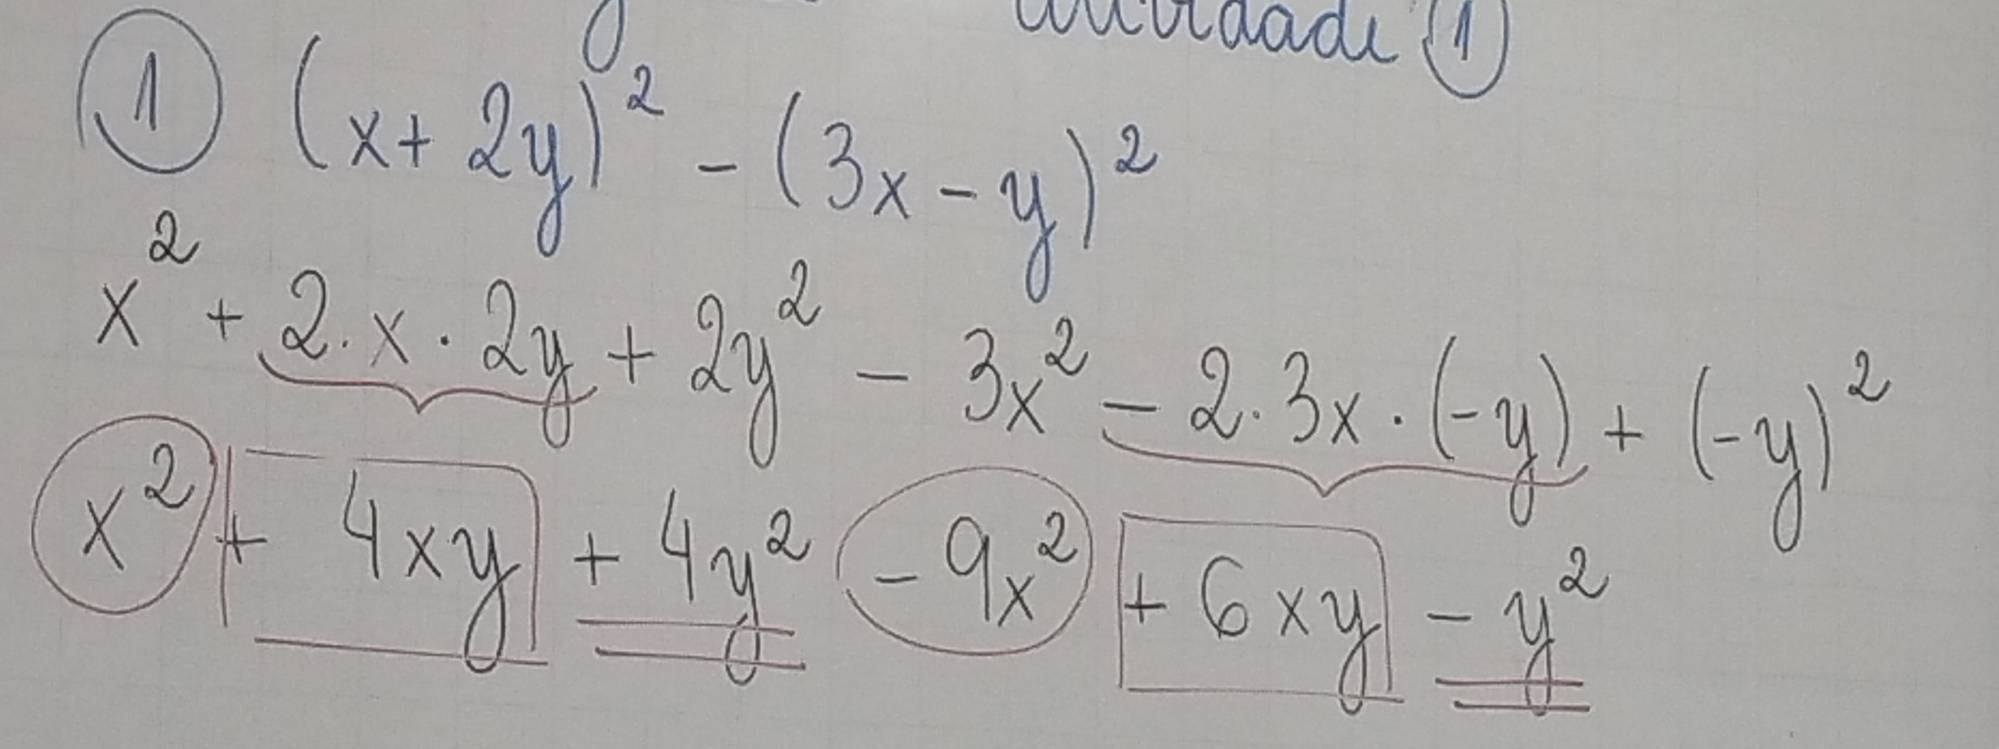 atividade ①
① (x + 2y)² - (3x - y)²
x² + 2·x·2y + 2y² - 3x² - 2·3x·(-y) + (-y)²
x² + 4xy + 4y² - 9x² + 6xy - y²